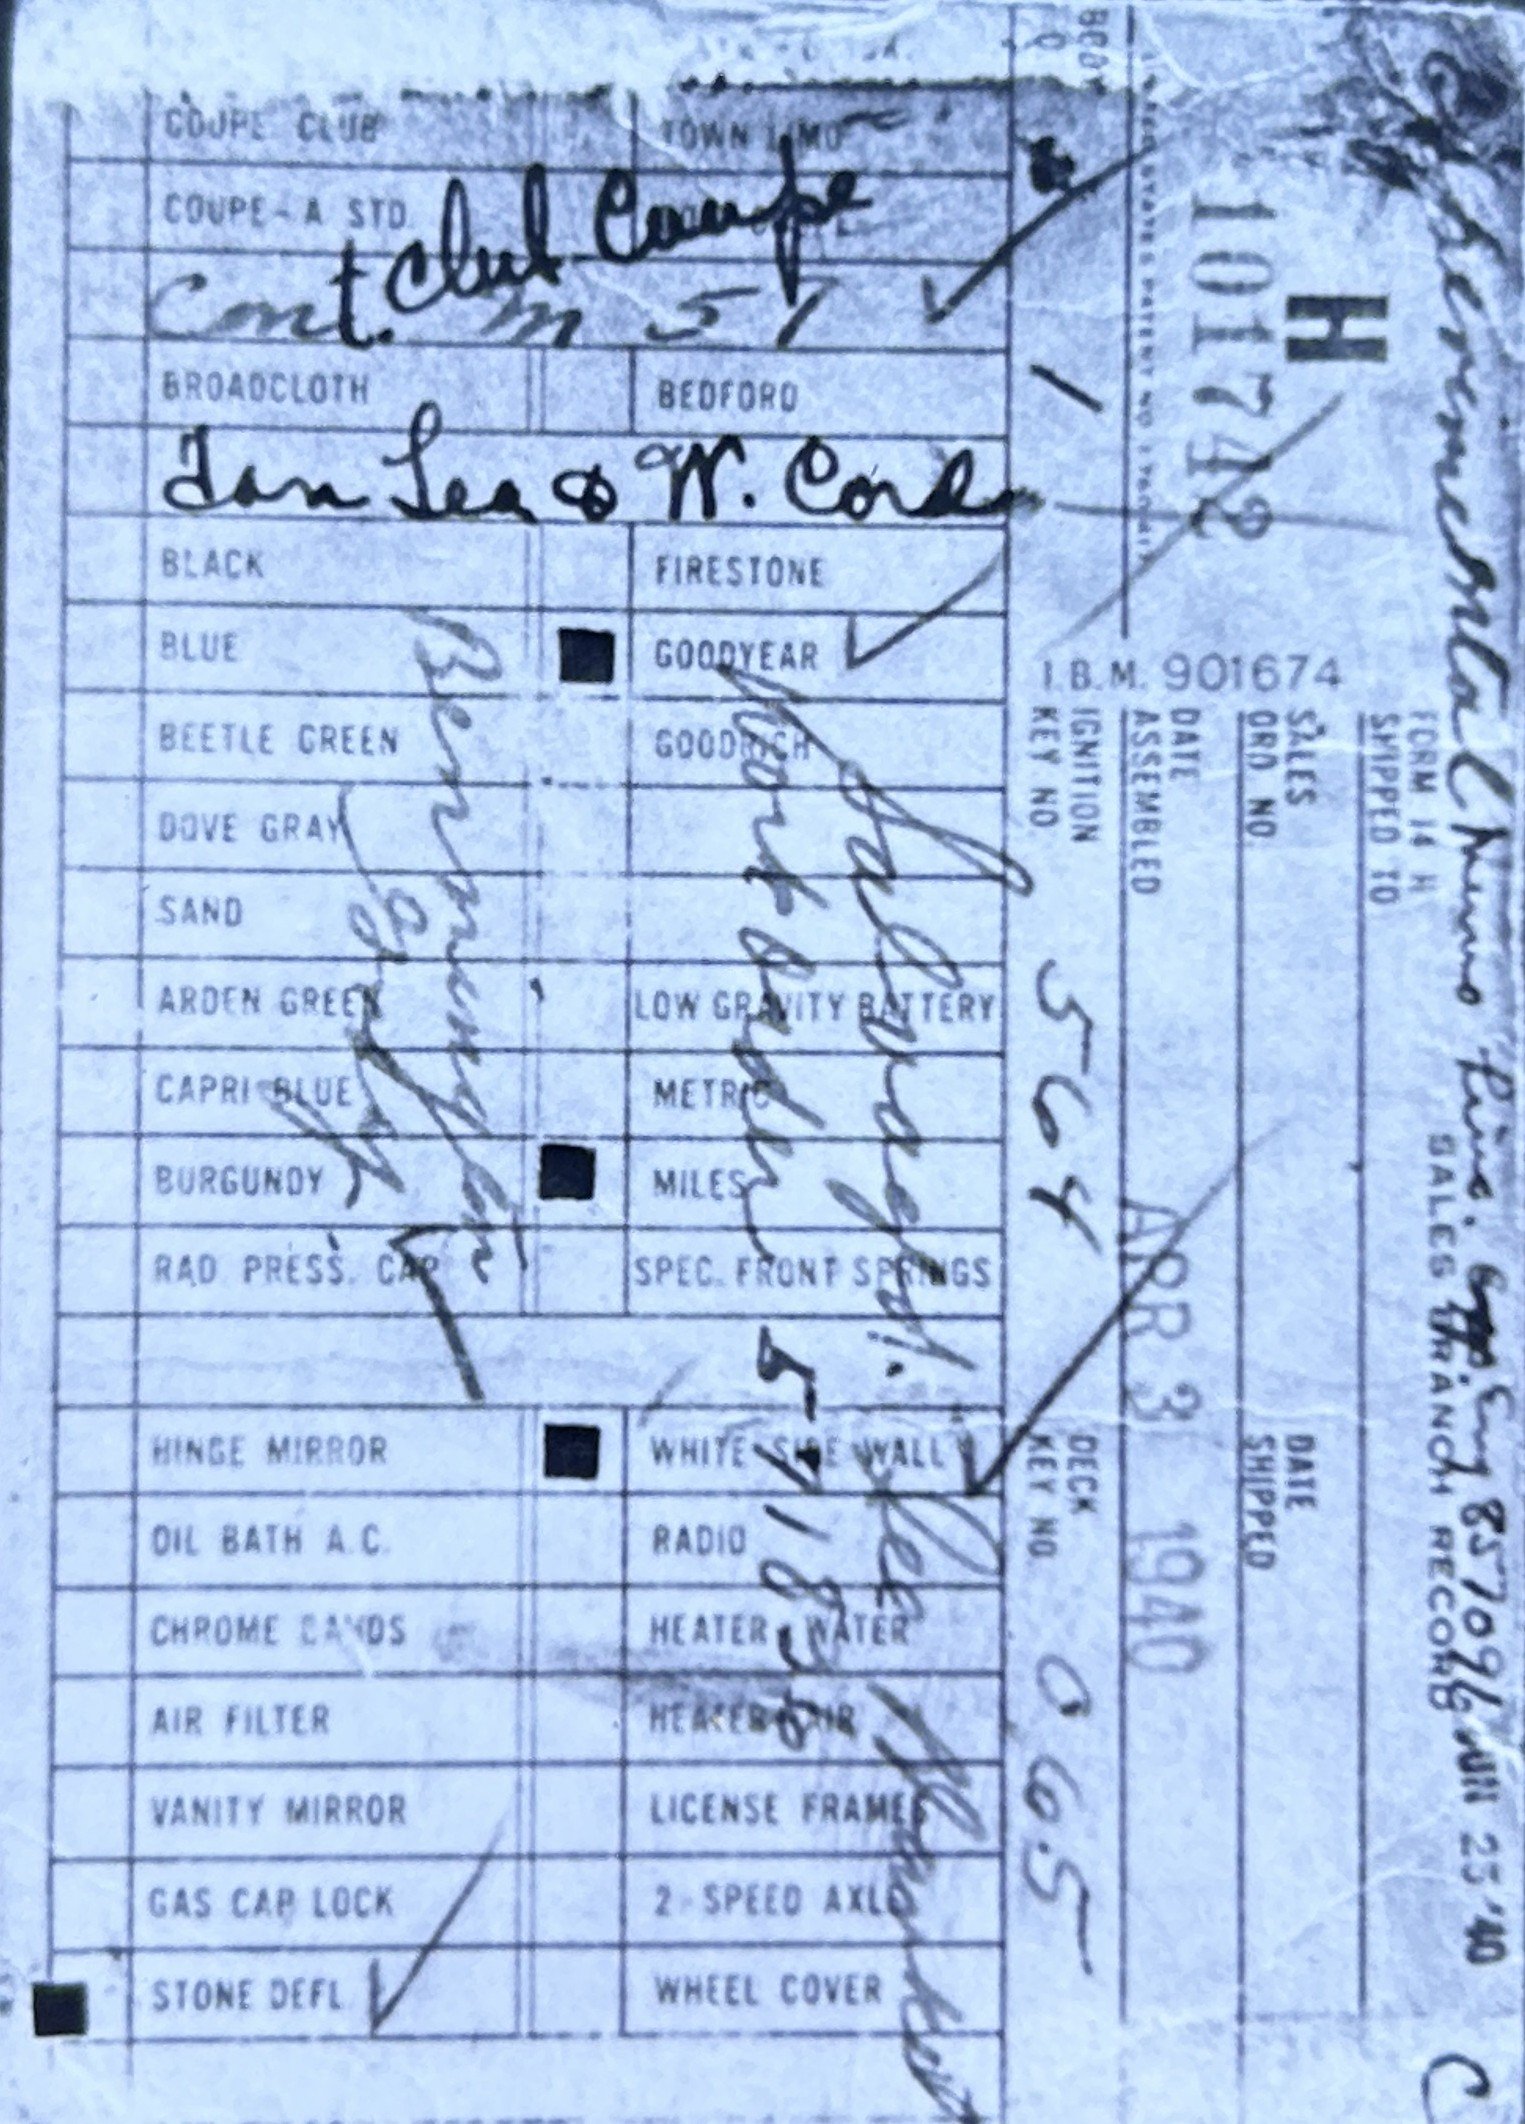 COUPE CLUB TOWN LIMO
COUPE-A STD.
club Coupe
Cont. M 51
BROADCLOTH BEDFORD
Tan Lea & W. Cord
BLACK FIRESTONE
BLUE GOODYEAR
BEETLE GREEN GOODRICH
DOVE GRAY
SAND
ARDEN GREEN LOW GRAVITY BATTERY
CAPRI BLUE METRIC
BURGUNDY MILES
RAD PRESS. CAP SPEC. FRONT SPRINGS
HINGE MIRROR WHITE SIDE WALL
OIL BATH A.C. RADIO
CHROME BANDS HEATER-WATER
AIR FILTER HEATER-AIR
VANITY MIRROR LICENSE FRAMES
GAS CAP LOCK 2-SPEED AXLE
STONE DEFL WHEEL COVER
Experimental
857096 JUN 25 '40
FORM 14 H SALES BRANCH RECORD
SHIPPED TO
H
SALES ORD NO. DATE SHIPPED
101742
DATE ASSEMBLED APR 3 1940
I.B.M. 901674
BODY
1
IGNITION KEY NO 564 DECK KEY NO 065
Salvaged. See
Work Order 5-1836
Bennington